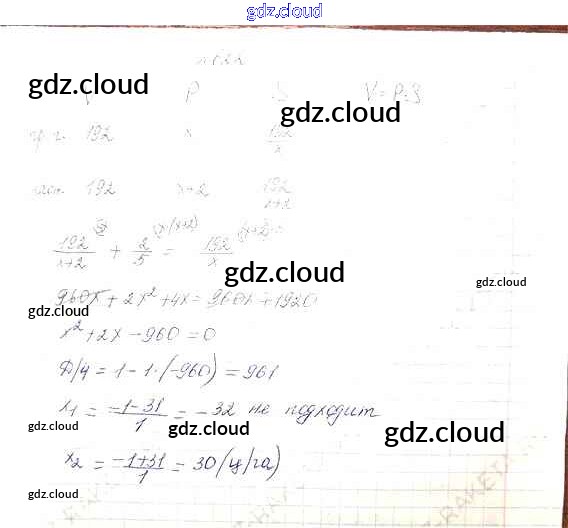 gdz.cloud
gdz.cloud
gdz.cloud
gdz.cloud
P S
192 x 192/x
192 x+2 192/x+2
192/x+2 + 2/5 = 192/x
gdz.cloud
gdz.cloud
960x + 2x² + 4x = 960x + 1920
gdz.cloud
x² + 2x - 960 = 0
D/4 = 1 - 1·(-960) = 961
x₁ = -1-31/1 = -32 не подходит
gdz.cloud
gdz.cloud
gdz.cloud
x₂ = -1+31/1 = 30 (ц/га)
gdz.cloud
gdz.cloud